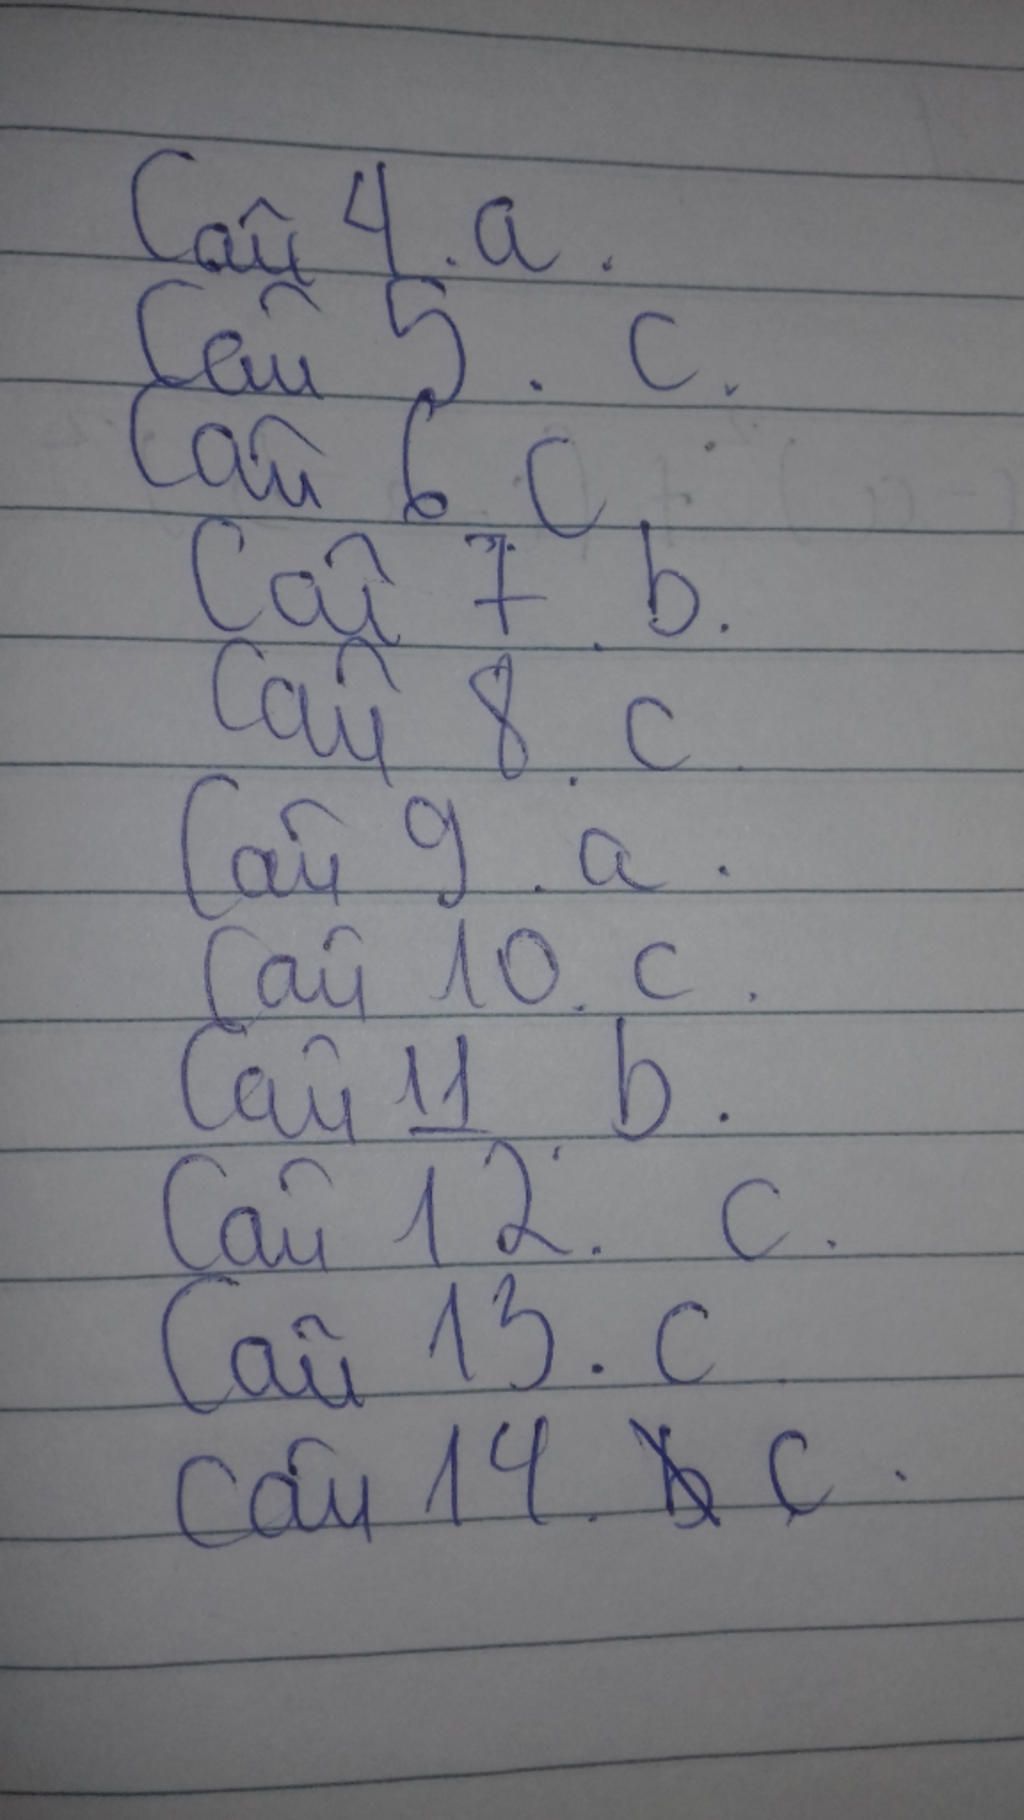 Câu 4. a.
Câu 5. c.
Câu 6. C.
Câu 7. b.
Câu 8. c.
Câu 9. a.
Câu 10. c.
Câu 11 b.
Câu 12. c.
Câu 13. c
Câu 14. c.